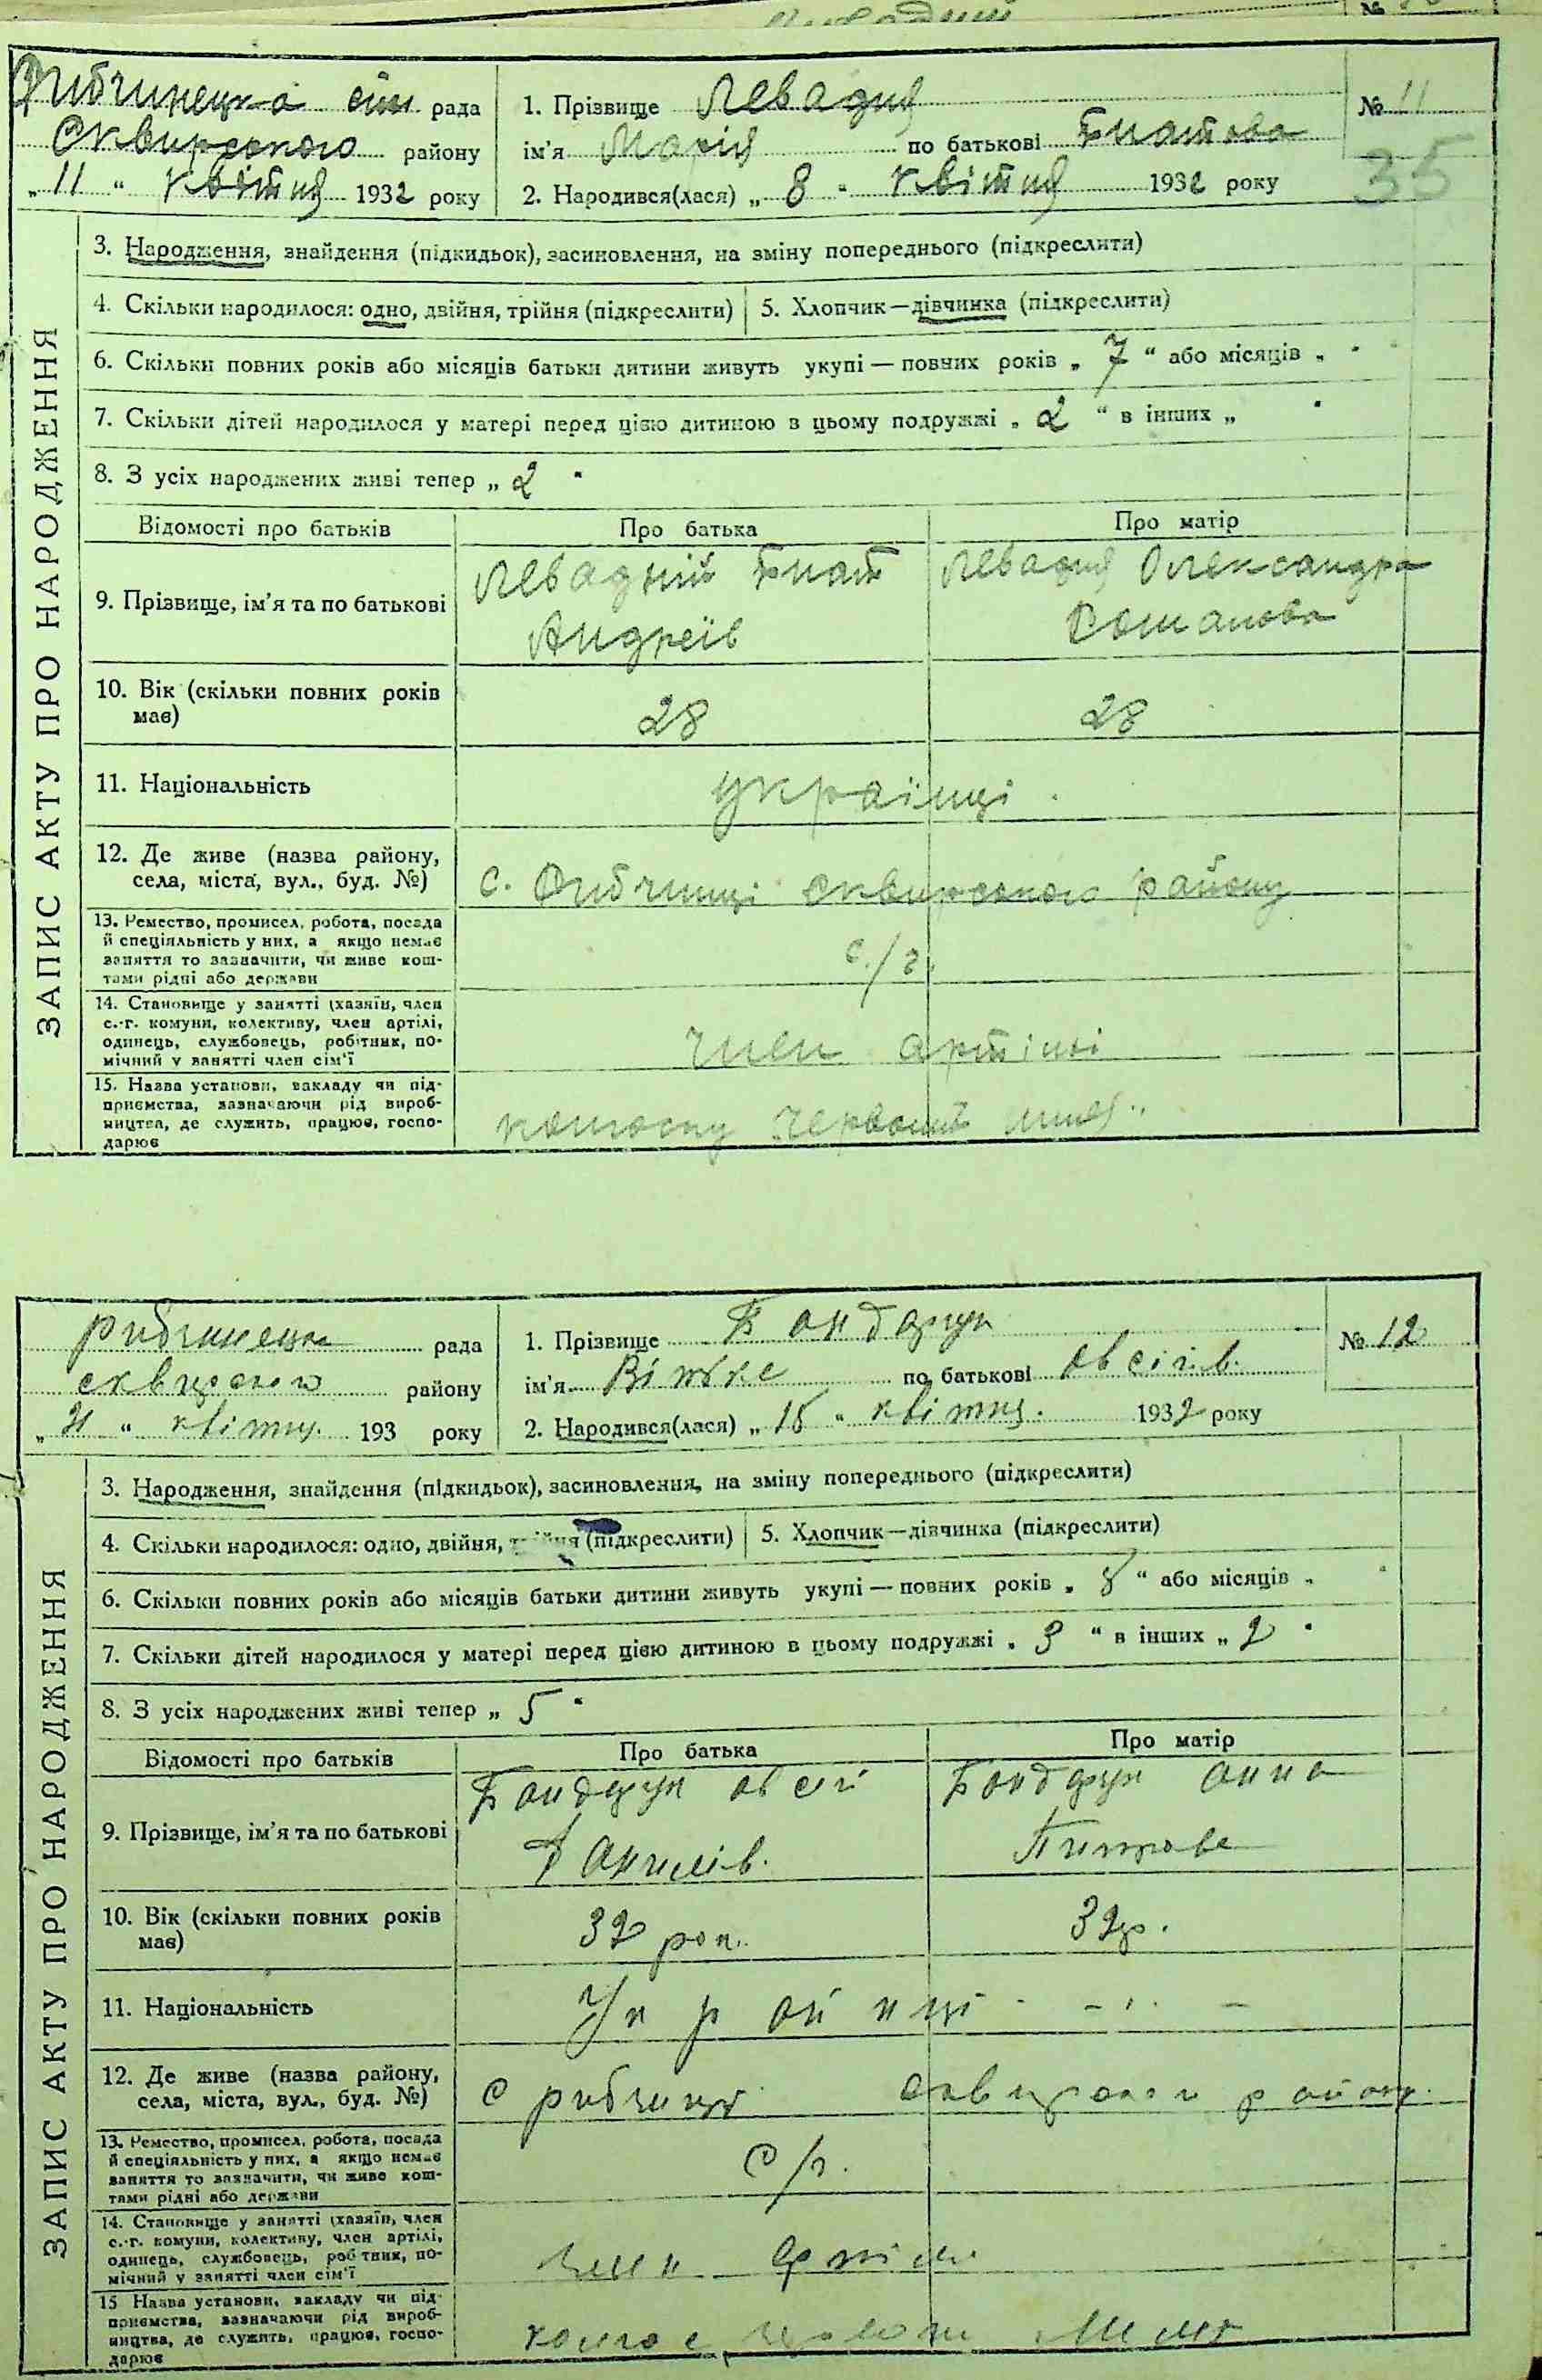 Рибчинецка сіль рада
Сквирського району
„ 11 “ квітня 1932 року
1. Прізвище Левадня
ім'я Марія по батькові Гнатова
2. Народився(лася) „ 8 “ квітня 1932 року
№ 11
35
ЗАПИС АКТУ ПРО НАРОДЖЕННЯ
3. Народження, знайдення (підкидьок), засиновлення, на зміну попереднього (підкреслити)
4. Скільки народилося: одно, двійня, трійня (підкреслити)
5. Хлопчик—дівчинка (підкреслити)
6. Скільки повних років або місяців батьки дитини живуть укупі — повних років „ 7 “ або місяців „ “
7. Скільки дітей народилося у матері перед цією дитиною в цьому подружжі „ 2 “ в інших „ “
8. З усіх народжених живі тепер „ 2 “
Відомості про батьків Про батька Про матір
9. Прізвище, ім'я та по батькові
Левадний Гнат
Андреїв
Левадня Олександра
Романова
10. Вік (скільки повних років
має)
28 28
11. Національність
українці
12. Де живе (назва району,
села, міста, вул., буд. №)
с. Рибчинці Сквирського району
13. Ремество, промисел, робота, посада
й спеціяльність у них, а якщо немає
заняття то зазначити, чи живе кош-
тами рідні або держави
с./г.
14. Становище у занятті (хазяїн, член
с.-г. комуни, колективу, член артілі,
одинець, службовець, робітник, по-
мічний у занятті член сім'ї
член артілі
15. Назва установи, закладу чи під-
приємства, зазначаючи рід вироб-
ництва, де служить, працює, госпо-
дарює
колгоспу Червоний
рибчинецка рада
сквирського району
„ “ квітня. 193 року
1. Прізвище Бондарук
ім'я по батькові овсіїв.
2. Народився(лася) „ 15 “ квітня. 1932 року
№ 12
ЗАПИС АКТУ ПРО НАРОДЖЕННЯ
3. Народження, знайдення (підкидьок), засиновлення, на зміну попереднього (підкреслити)
4. Скільки народилося: одно, двійня, трійня (підкреслити)
5. Хлопчик—дівчинка (підкреслити)
6. Скільки повних років або місяців батьки дитини живуть укупі — повних років „ 8 “ або місяців „ “
7. Скільки дітей народилося у матері перед цією дитиною в цьому подружжі „ 3 “ в інших „ 2 “
8. З усіх народжених живі тепер „ 5 “
Відомості про батьків Про батька Про матір
9. Прізвище, ім'я та по батькові
Бондарук овсій
Данилів.
Бондарук анна
10. Вік (скільки повних років
має)
32 рок. 32р.
11. Національність
Украйнці
12. Де живе (назва району,
села, міста, вул., буд. №)
с рибчинці сквирского району.
13. Ремество, промисел, робота, посада
й спеціяльність у них, а якщо немає
заняття то зазначити, чи живе кош-
тами рідні або держави
с/г.
14. Становище у занятті (хазяїн, член
с.-г. комуни, колективу, член артілі,
одинець, службовець, робітник, по-
мічний у занятті член сім'ї
член артіли
15 Назва установи, закладу чи під-
приємства, зазначаючи рід вироб-
ництва, де служить, працює, госпо-
дарює